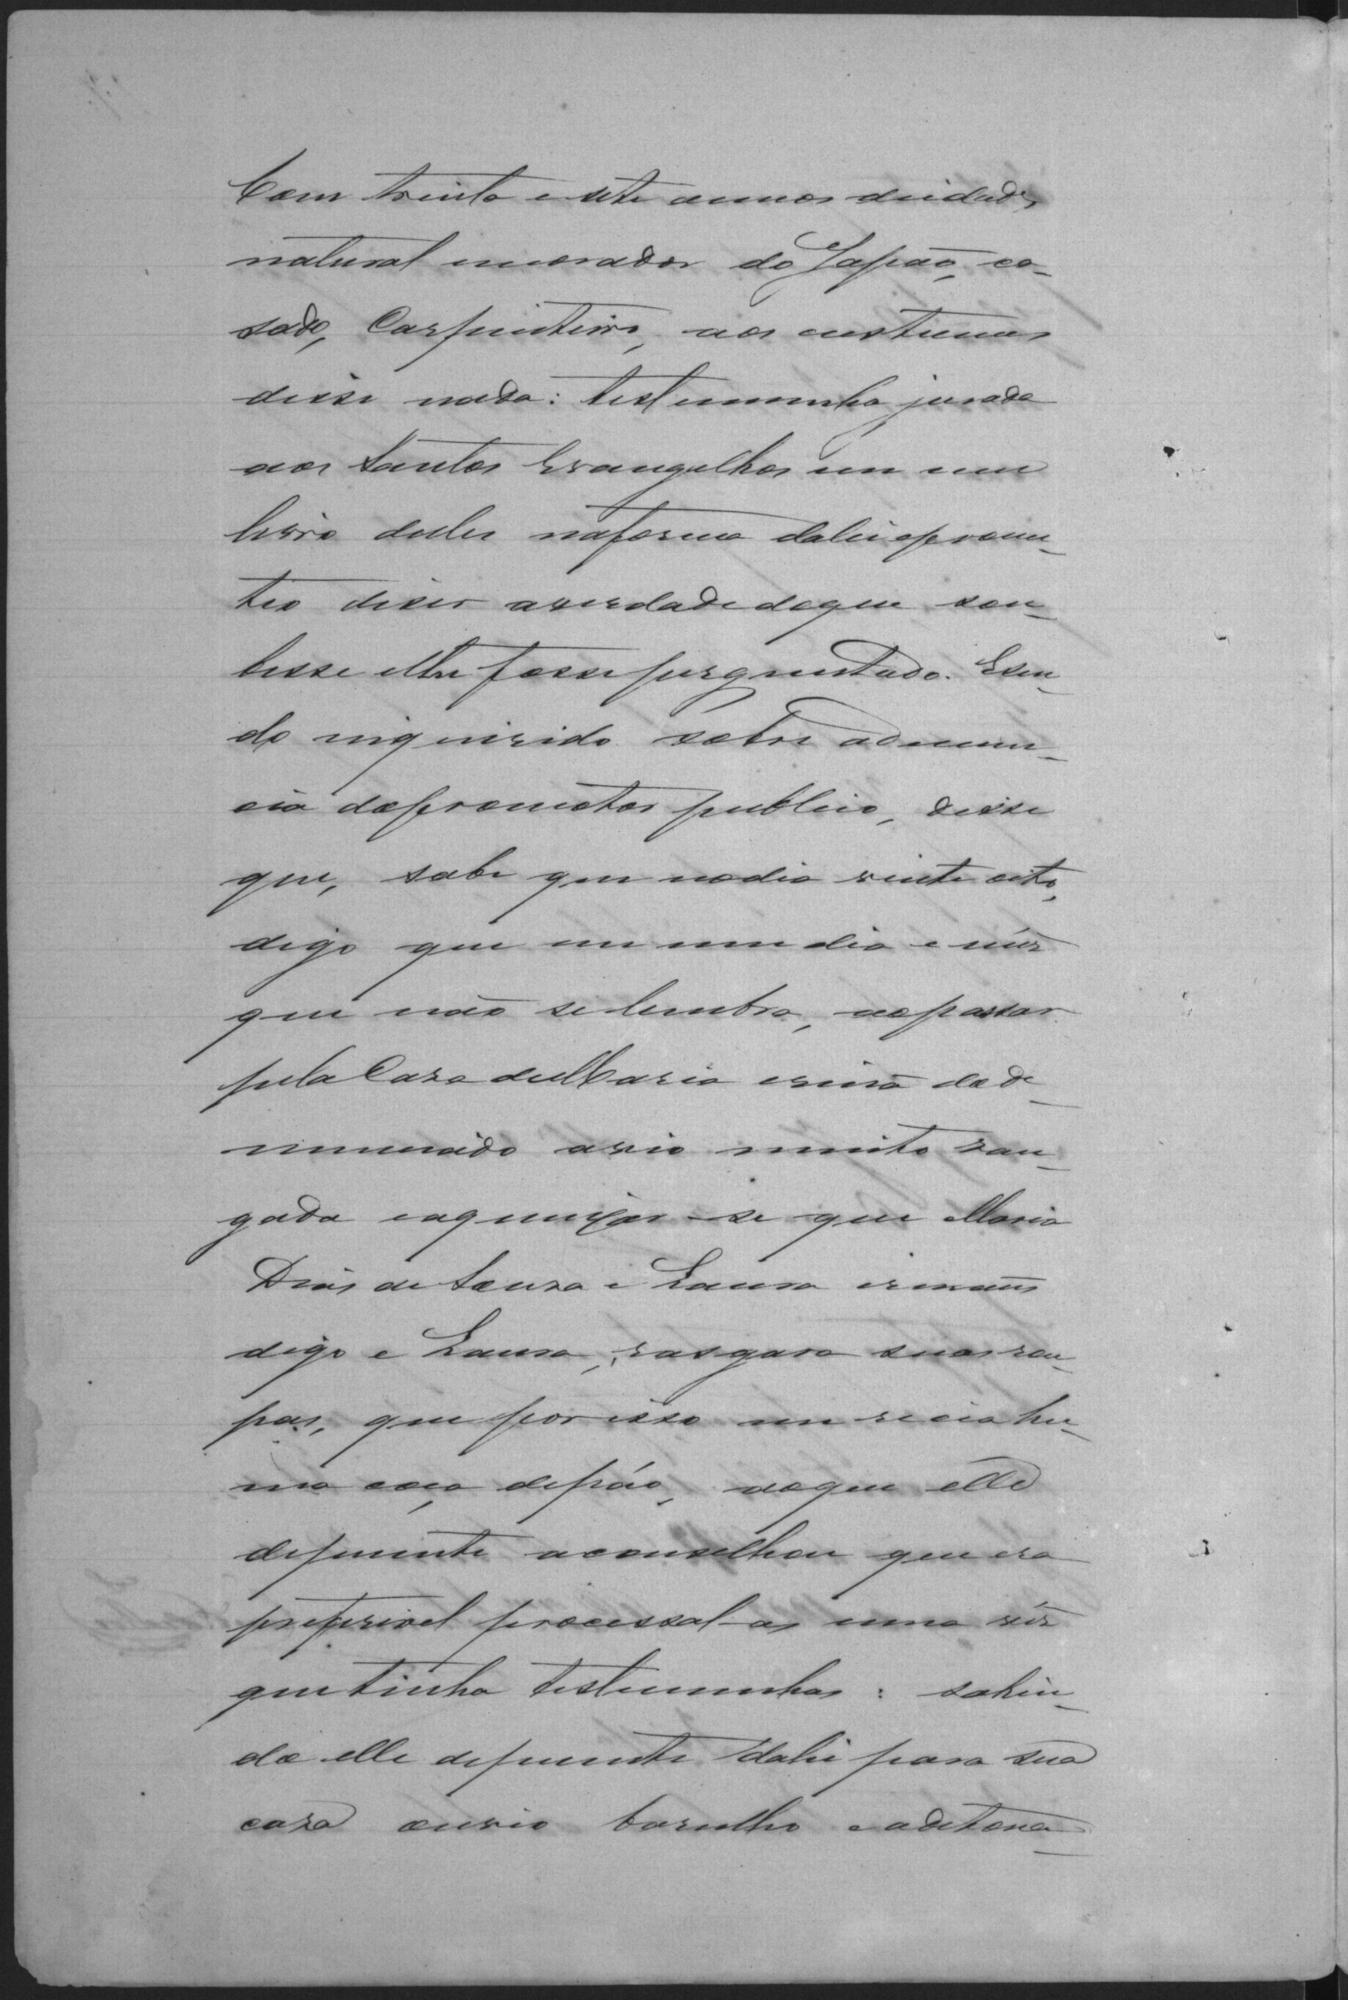 Com trinta e sete annos deidade,
natural emorador do Japão, ca-
sado, Carpinteiro, aos custumes
disse nada: testemunha jurada
aos Santos Evangelhos em um
livro delles naforma dalei eprome-
teo diser averdade doque sou-
besse elhe fosse perguntado. Esen-
do inquirido sobre adenun-
cia dopromotor publico, disse
que, sabe que nodia vinte oito,
digo que em um dia e mês
que não se lembra, aopassar
pela Casa deMaria irmã dode-
nunciado avio muito zan-
gada eaqueixar-se que Maria
Dias de Souza e Laura irmans
digo e Laura, rasgara suas rou-
pas, que por isso merecia hu-
ma coça depáo, aoque elle
depuente aconselhou que era
preferivel processal-as uma vês
quetinha testemunhas: sahin-
do elle depuente dahi para sua
casa ouvio barulho e